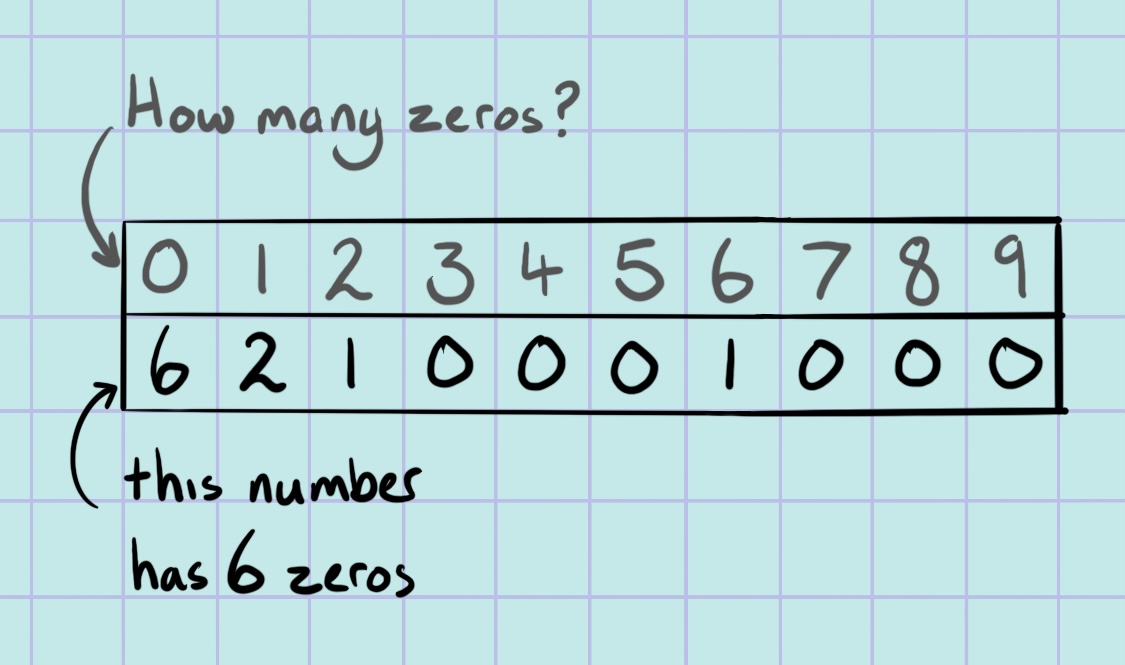 How many zeros?
0 1 2 3 4 5 6 7 8 9
6 2 1 0 0 0 1 0 0 0
this number
has 6 zeros